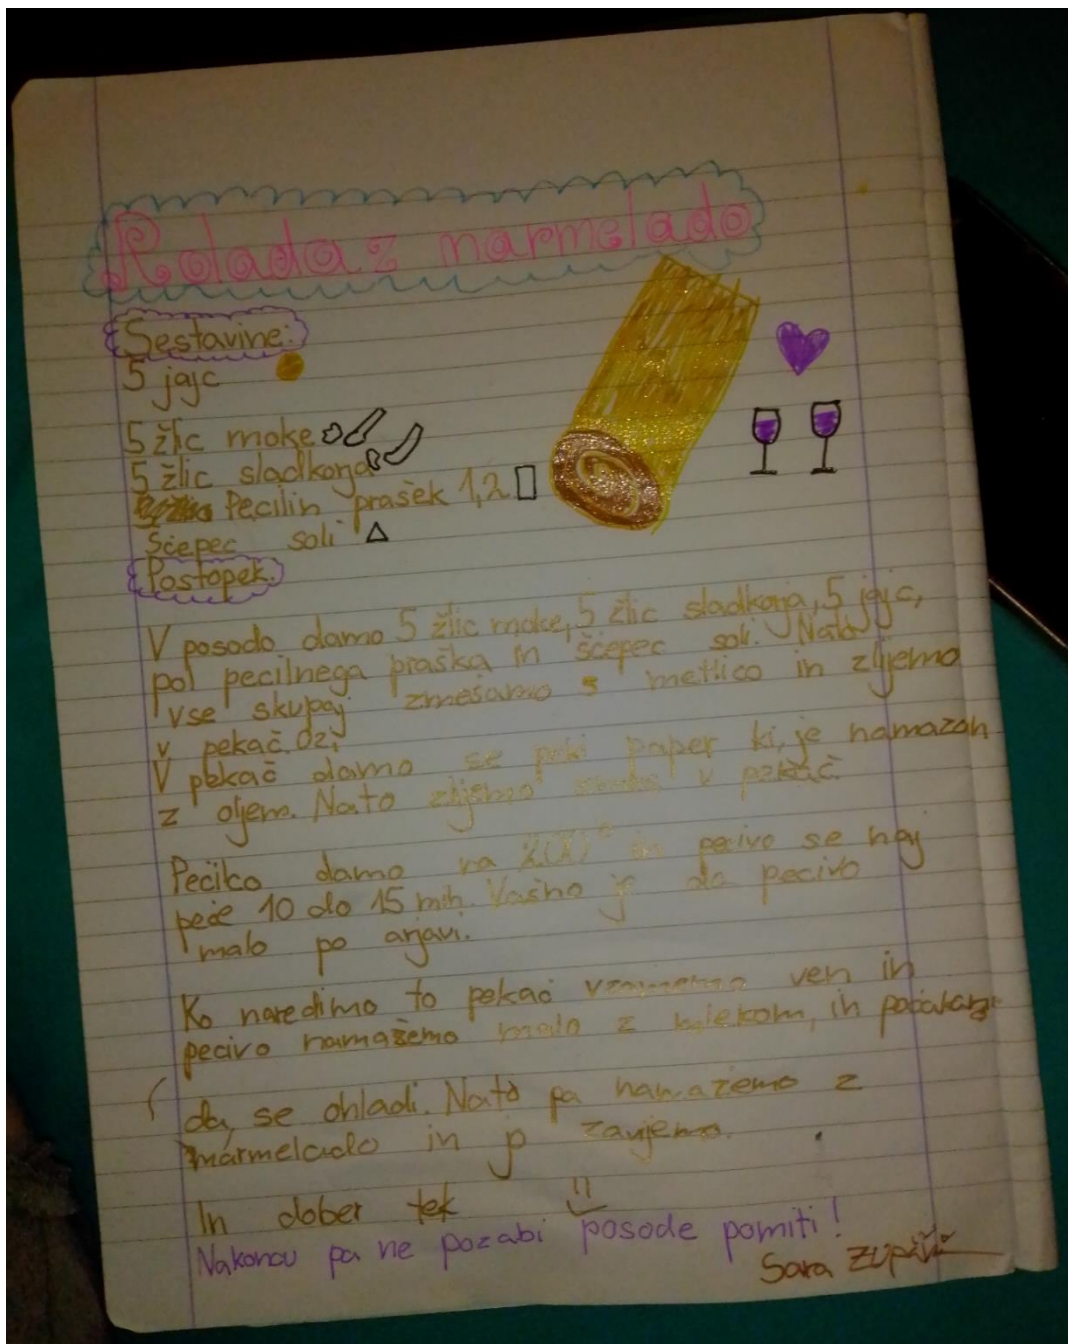 Rolada z marmelado
Sestavine:
5 jajc
5 žlic moke
5 žlic sladkorja
Pecilin prašek 1,2
Ščepec soli
Postopek:
V posodo damo 5 žlic moke, 5 žlic sladkorja, 5 jajc,
pol pecilnega praška in ščepec soli. Nato
vse skupaj zmešamo s metlico in zlijemo
v pekač. Ozi
V pekač damo se peki paper ki, je namazan
z oljem. Nato zlijemo v pekač.
Pečico damo na 200° in pecivo se naj
peče 10 do 15 min. Vašno je da pecivo
malo po arjavi.
Ko naredimo to pekač vzamemo ven in
pecivo namažemo malo z mlekom, in počakamo
da, se ohladi. Nato pa namažemo z
marmelado in p zavijemo.
In dober tek
Nakonou pa ne pozabi posode pomiti!
Sara